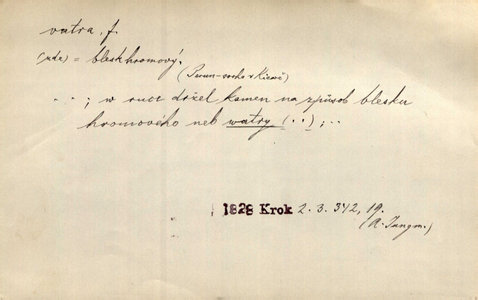 vatra, f.
(zde) = blesk hromový.
(Perun - socha v Kiewě)
. . . ; w ruce držel kamen na způsob blesku
hromového neb watry (. .) ; . .
1828 Krok 2. 3. 342, 19.
(A. Jungm.)